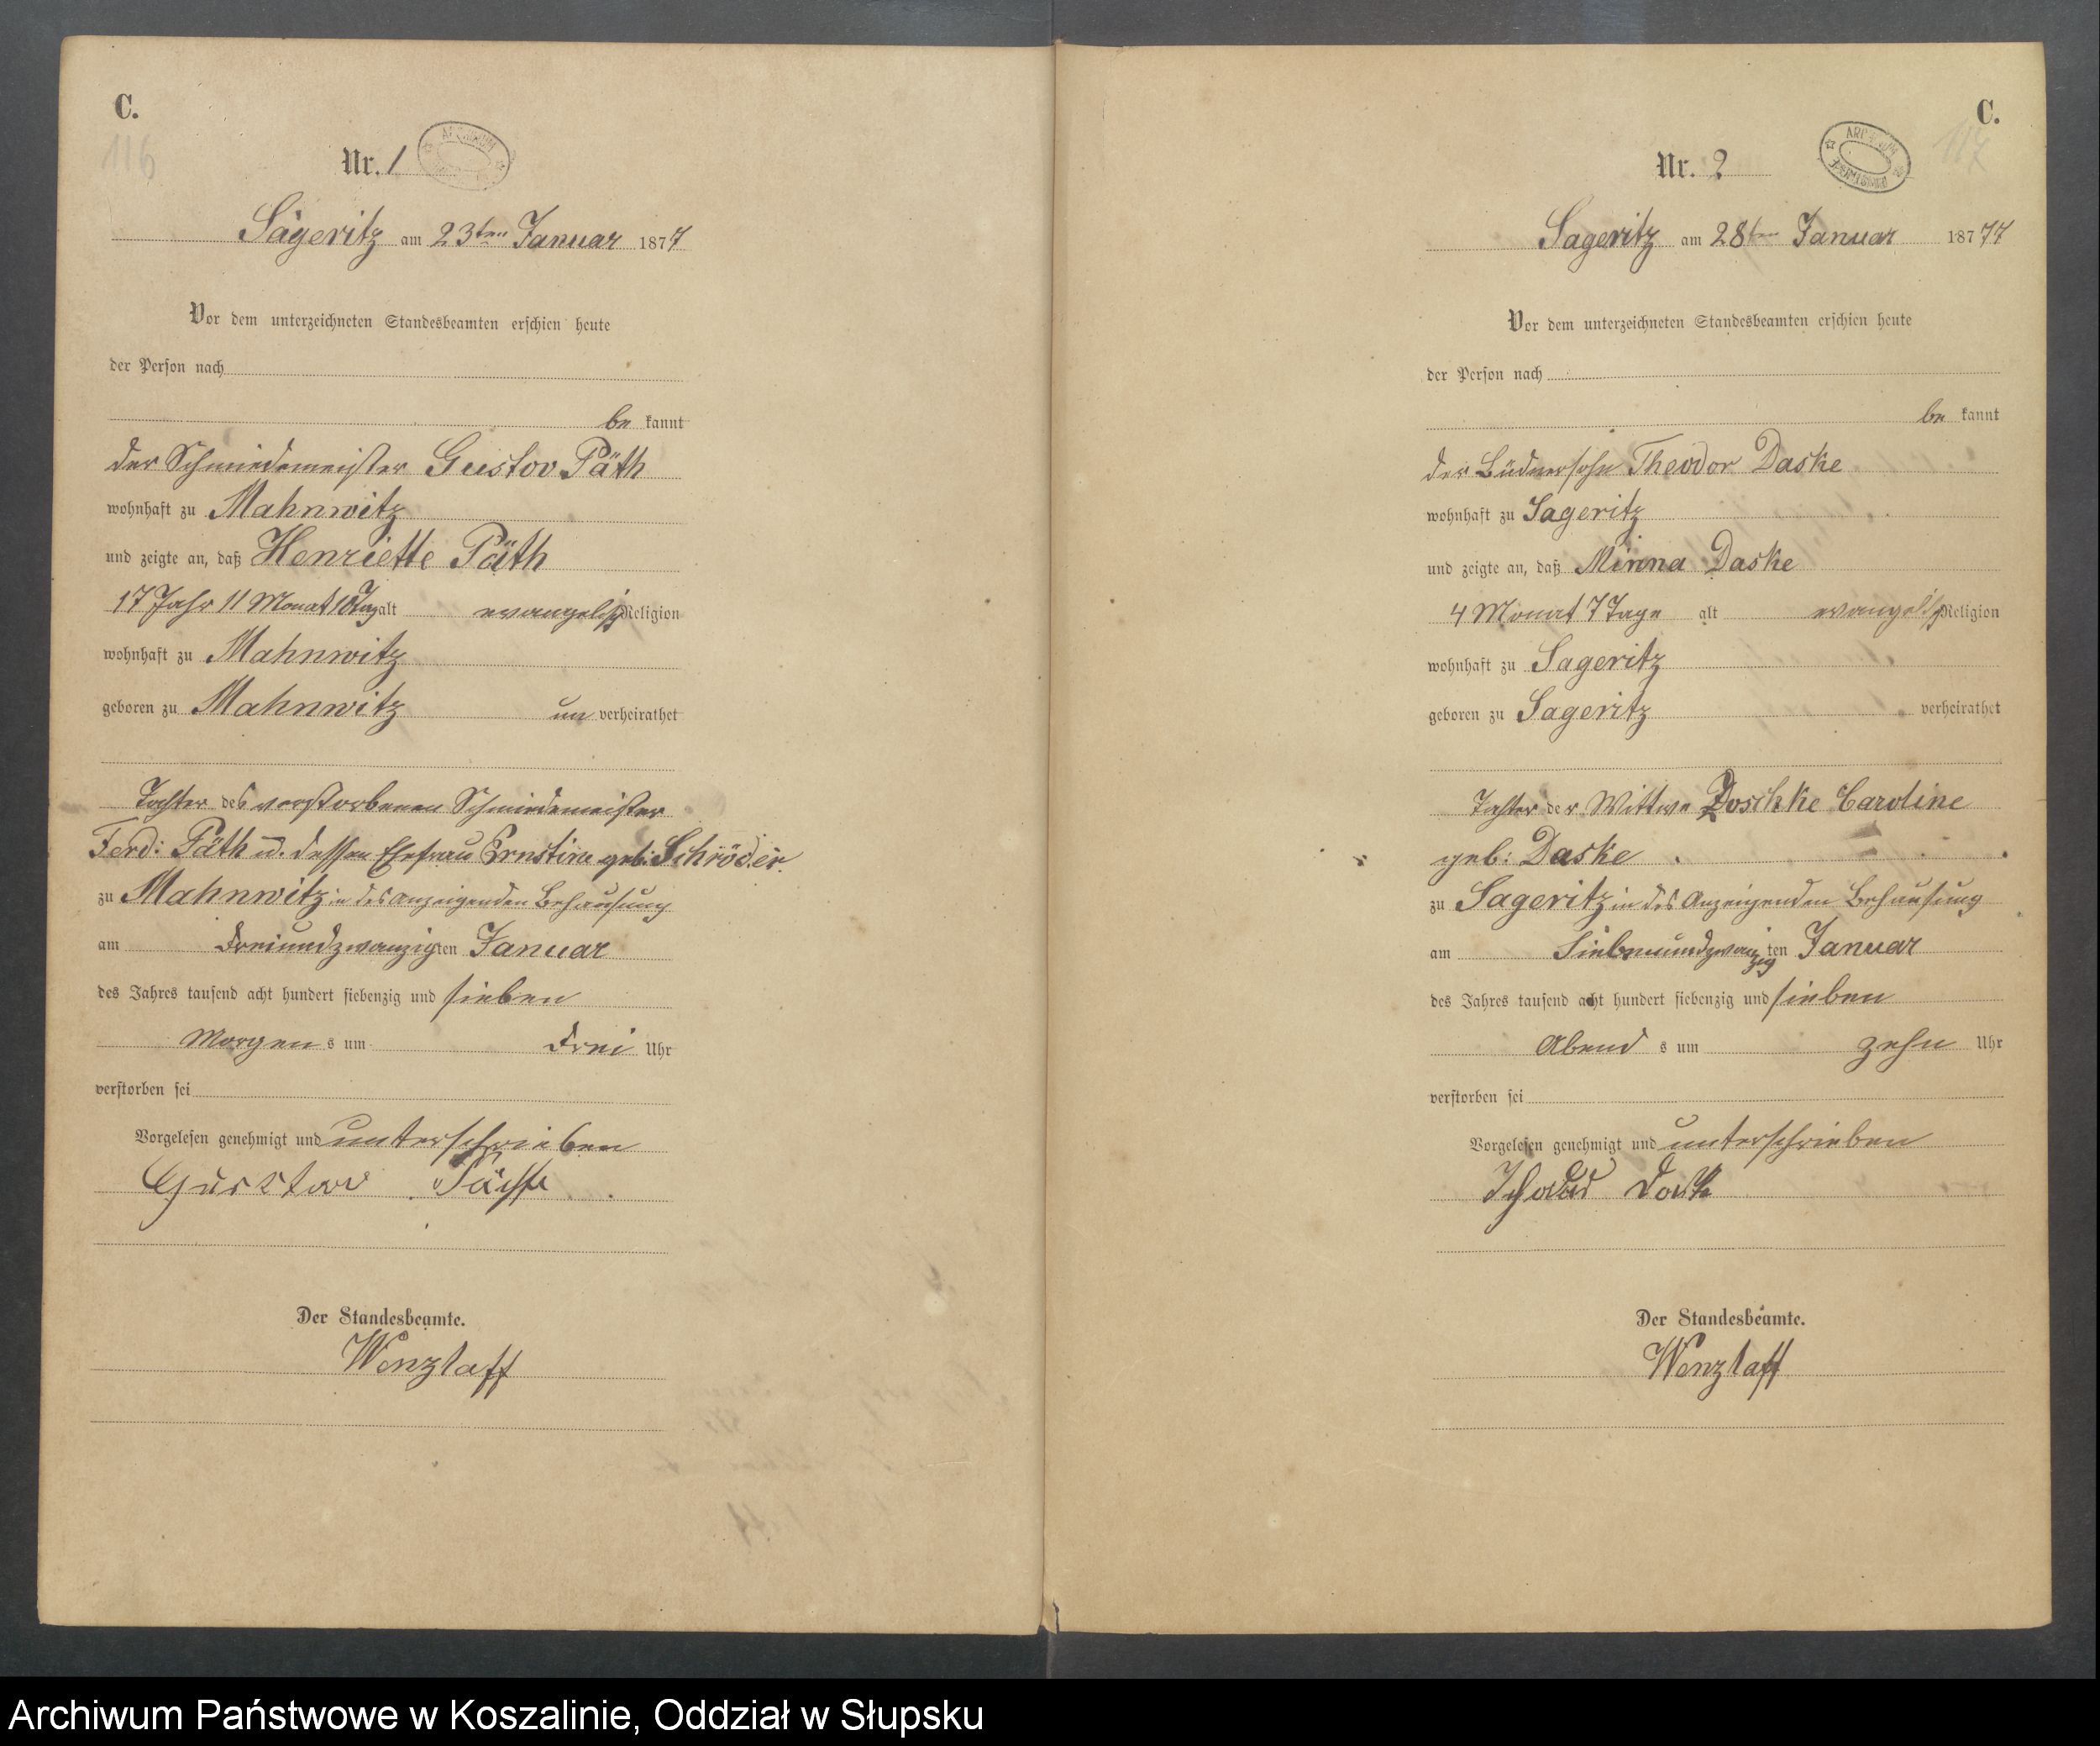 C.
116
Nr. 1
Sageritz am 23ten Januar 1877
Vor dem unterzeichneten Standesbeamten erschien heute
der Person nach
be kannt
der Schmiedemeister Gustav Päth
wohnhaft zu Mahnwitz
und zeigte an, daß Henriette Päth
17 Jahr 11 Monat 10 Tag alt evangelisch Religion
wohnhaft zu Mahnwitz
geboren zu Mahnwitz un verheirathet
Tochter des verstorbenen Schmiedemeister
Ferd: Päth u. dessen Ehefrau Ernstine geb: Schröder.
zu Mahnwitz in des Anzeigenden Behausung
am dreiundzwanzigten Januar
des Jahres tausend acht hundert siebenzig und sieben
Morgen s um drei Uhr
verstorben sei
Vorgelesen genehmigt und unterschrieben
Gusstav Päth
Der Standesbeamte.
Wenzlaff
C.
117
Nr. 2
Sageritz am 28ten Januar 18777
Vor dem unterzeichneten Standesbeamten erschien heute
der Person nach
be kannt
der Büdnersohn Theodor Daske
wohnhaft zu Sageritz
und zeigte an, daß Minna Daske
4 Monat 7 Tage alt evangelisch Religion
wohnhaft zu Sageritz
geboren zu Sageritz verheirathet
Tochter der Wittwe Doschke Caroline
geb: Daske
zu Sageritz in des Anzeigenden Behausung
am Siebenundzwanzig ten Januar
des Jahres tausend acht hundert siebenzig und sieben
Abend s um zehn Uhr
verstorben sei
Vorgelesen genehmigt und unterschrieben
Daske
Der Standesbeamte.
Wenzlaff
Archiwum Państwowe w Koszalinie, Oddział w Słupsku